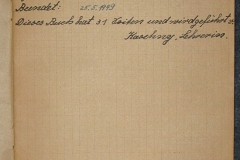 Beendet: 25.5.1949
Dieses Buch hat 31 Seiten und wird geführt v.
Kaschny, Lehrerin.